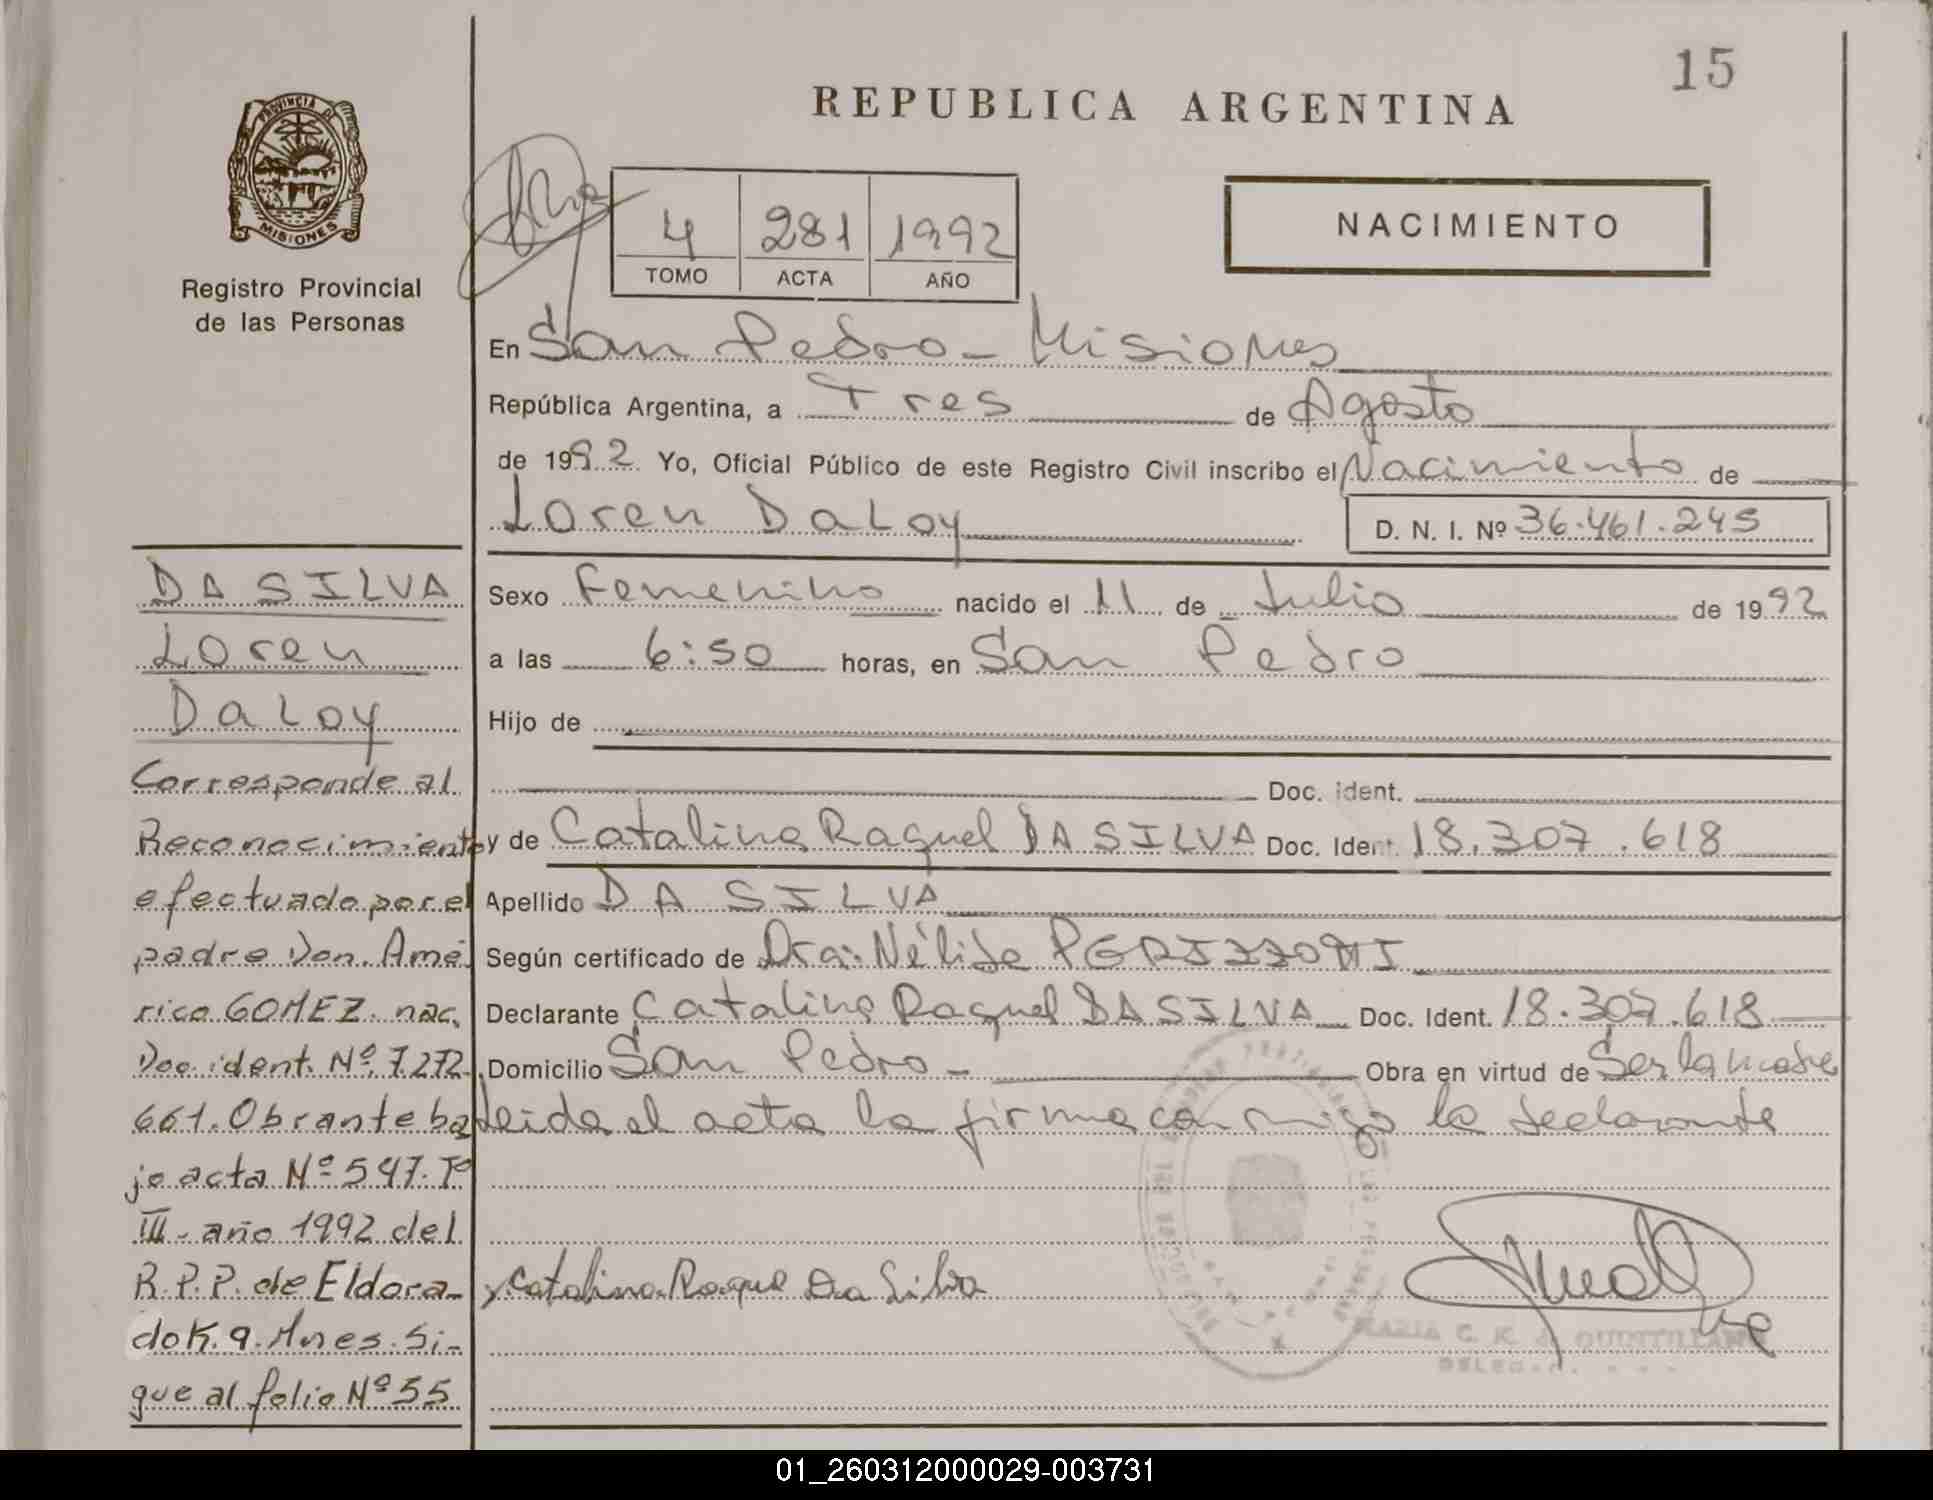 15
REPUBLICA ARGENTINA
PROVINCIA DE
MISIONES
Registro Provincial
de las Personas
4 281 1992
TOMO ACTA AÑO
NACIMIENTO
En San Pedro - Misiones
República Argentina, a Tres de Agosto
de 1992 Yo, Oficial Público de este Registro Civil inscribo el Nacimiento de
Loren Daloy
D. N. I. Nº 36.461.245
Sexo Femenino nacido el 11 de Julio de 1992
a las 6:50 horas, en San Pedro
Hijo de
Doc. ident.
y de Catalina Raquel DA SILVA Doc. Ident. 18.307.618
Apellido DA SILVA
Según certificado de Dra: Nélida
Declarante Catalina Raquel DA SILVA Doc. Ident. 18.307.618
Domicilio San Pedro - Obra en virtud de Ser la madre
Leida el acta la firma con migo la declarante
Catalina Raque Da Silva
MARIA C. K. de QUINTILLAN
DA SILVA
Loren
Daloy
Corresponde al
Reconocimiento
efectuado por el
padre Don. Amé
rico GOMEZ. nac.
Doc. ident. Nº 7.272.
661. Obrante ba
jo acta Nº 547. Tº
III - año 1992 del
R.P.P. de Eldora-
do K. 9. Mnes. Si-
gue al folio Nº 55
01_260312000029-003731